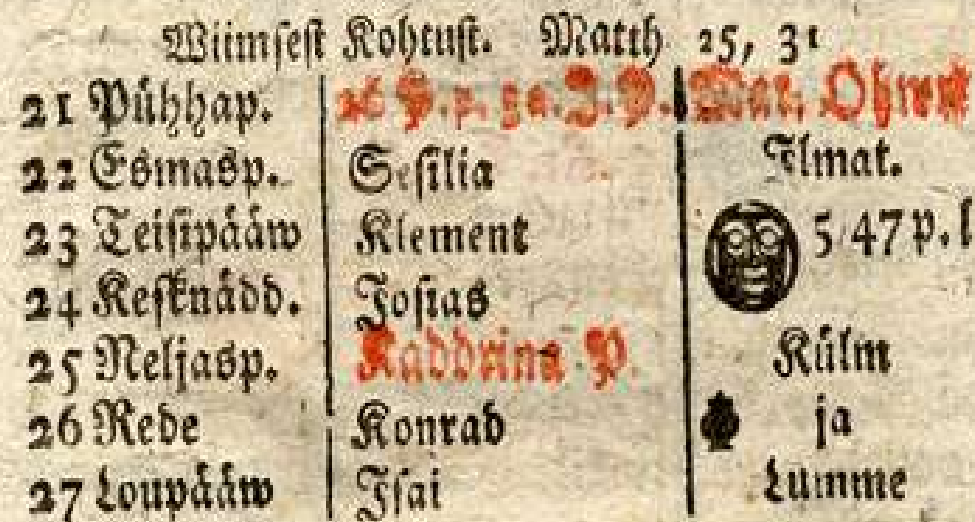 Wiimsest Kohtust. Matth 25, 31
21 Pühhap. 26 P. p. 3 a. J. P. Mar. Ohvr
22 Esmasp. Sesilia Ilmat.
23 Teisipääw Klement 5 47 p. l
24 Kesknädd. Josias
25 Neljasp. Kaddrina P. Külm
26 Rede Konrad ja
27 Loupääw Isai Lumme